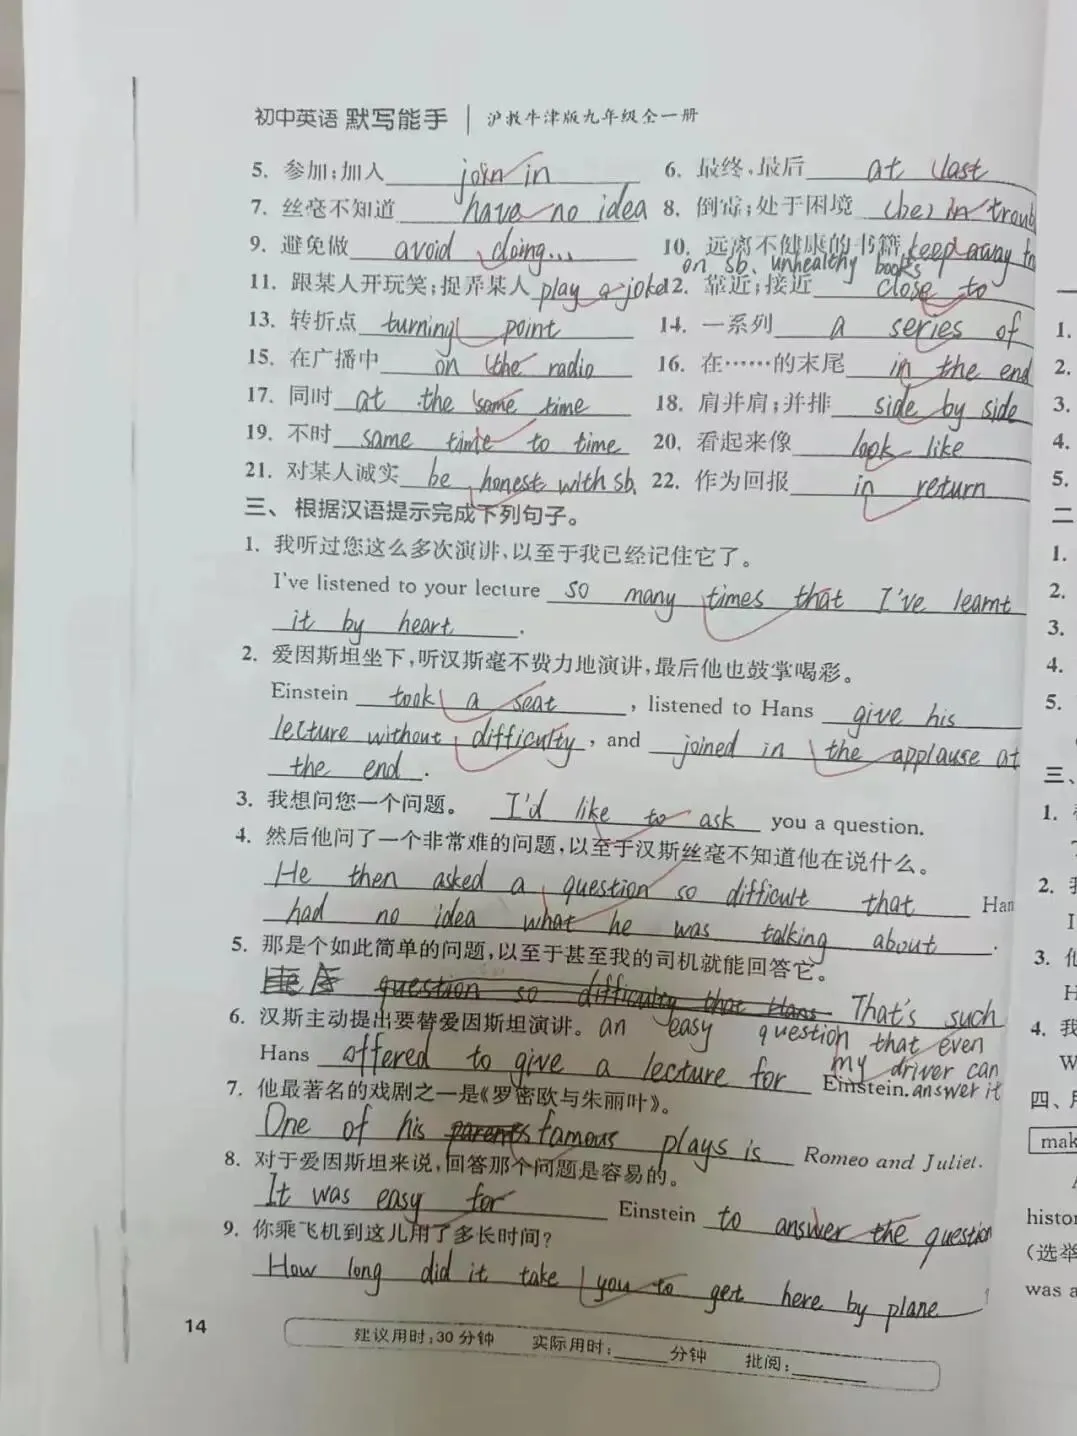 初中英语 默写能手 | 沪教牛津版九年级全一册
5. 参加;加入 join in 6. 最终,最后 at last
7. 丝毫不知道 have no idea 8. 倒霉;处于困境 (be) in troub
9. 避免做 avoid doing... 10. 远离不健康的书籍 keep away
on sb. unhealthy books
11. 跟某人开玩笑;捉弄某人 play a joke 12. 靠近;接近 close to
13. 转折点 turning point 14. 一系列 a series of
15. 在广播中 on the radio 16. 在……的末尾 in the end
17. 同时 at the same time 18. 肩并肩;并排 side by side
19. 不时 same time to time 20. 看起来像 look like
21. 对某人诚实 be honest with sb. 22. 作为回报 in return
三、根据汉语提示完成下列句子。
1. 我听过您这么多次演讲,以至于我已经记住它了。
I've listened to your lecture so many times that I've learnt
it by heart.
2. 爱因斯坦坐下,听汉斯毫不费力地演讲,最后他也鼓掌喝彩。
Einstein took a seat, listened to Hans give his
lecture without difficulty, and joined in the applause at
the end.
3. 我想问您一个问题。 I'd like to ask you a question.
4. 然后他问了一个非常难的问题,以至于汉斯丝毫不知道他在说什么。
He then asked a question so difficult that Han
had no idea what he was talking about.
5. 那是个如此简单的问题,以至于甚至我的司机就能回答它。
question so difficulty that Hans That's such
6. 汉斯主动提出要替爱因斯坦演讲。 an easy question that even
my driver can
Hans offered to give a lecture for Einstein. answer it
7. 他最著名的戏剧之一是《罗密欧与朱丽叶》。
One of his parents famous plays is Romeo and Juliet.
8. 对于爱因斯坦来说,回答那个问题是容易的。
It was easy for Einstein to answer the question
9. 你乘飞机到这儿用了多长时间?
How long did it take you to get here by plane
14
建议用时:30分钟 实际用时:____分钟 批阅:____
1.
2.
3.
4.
5.
二
1.
2.
3.
4.
5.
三、
1.
2. 我
I
3. 他
H
4. 我
W
四、用
mak
A
histor
(选举
was a